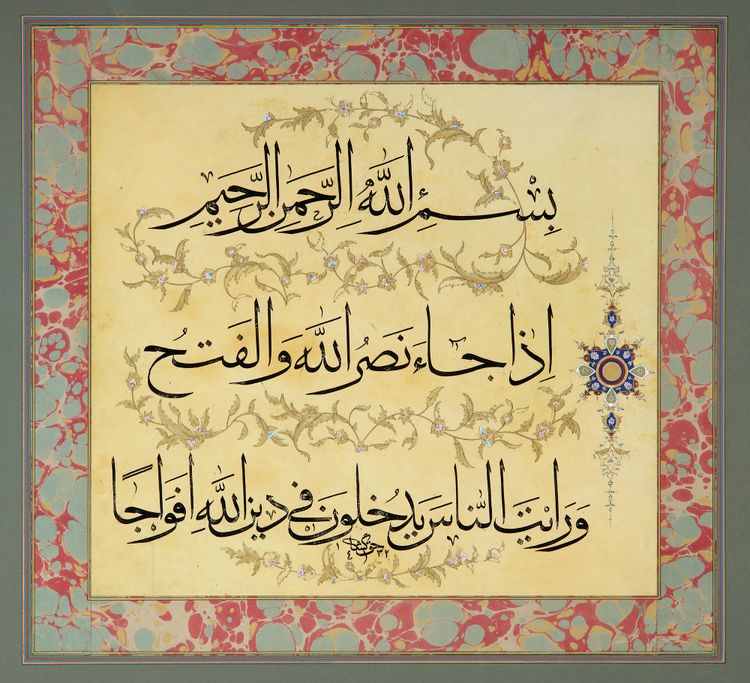 بِسْمِ اللّٰهِ الرَّحْمٰنِ الرَّحِيمِ
اِذَا جَاءَ نَصْرُ اللّٰهِ وَالْفَتْحُ
وَرَاَيْتَ النَّاسَ يَدْخُلُونَ فِي دِينِ اللّٰهِ اَفْوَاجًا